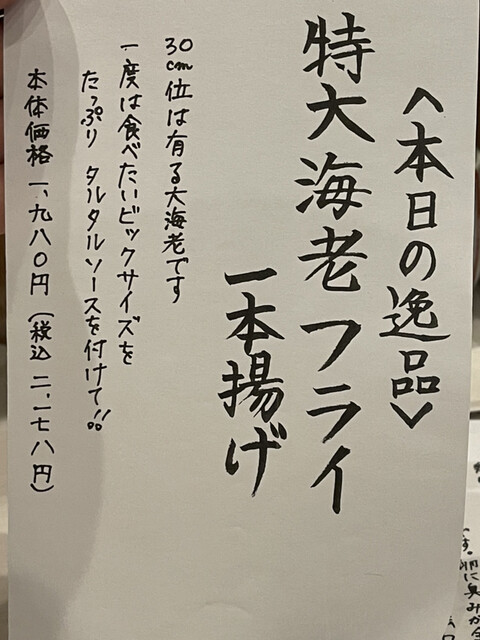 <本日の逸品>
特大海老フライ
一本揚げ
30cm位は有る大海老です
一度は食べたいビックサイズを
たっぷり タルタルソースを付けて!!
本体価格一、九八〇円(税込 二、一七八円)